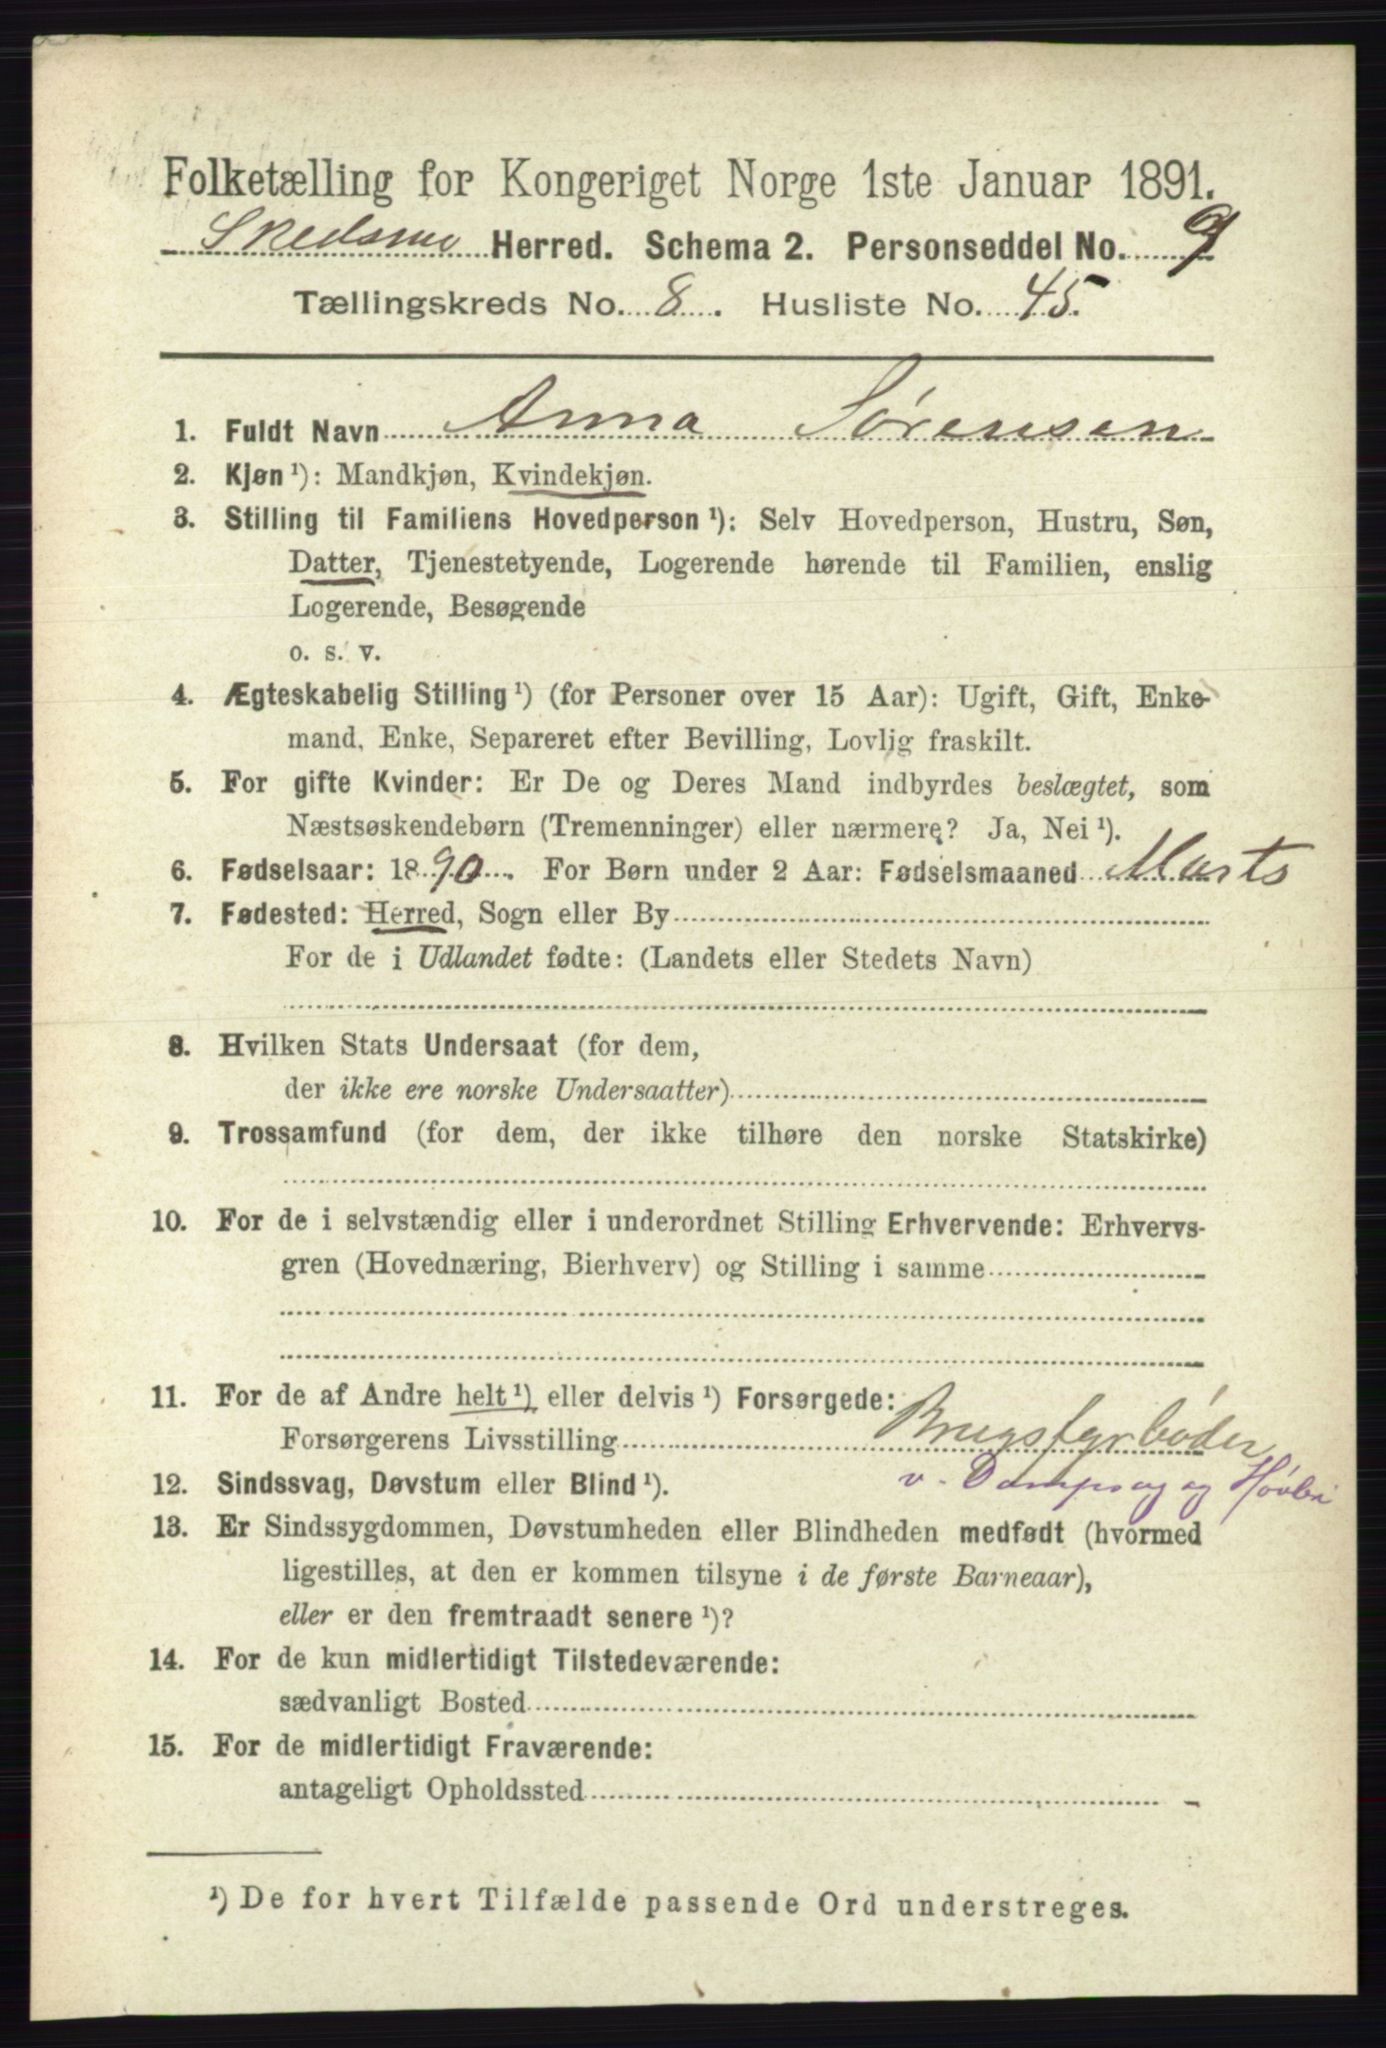 Folketælling for Kongeriget Norge 1ste Januar 1891.
Skedsmo Herred. Schema 2. Personseddel No. 9
Tællingskreds No. 8. Husliste No. 45.
1. Fuldt Navn Anna Sørensen
2. Kjøn ¹): Mandkjøn, Kvindekjøn.
3. Stilling til Familiens Hovedperson ¹): Selv Hovedperson, Hustru, Søn,
Datter, Tjenestetyende, Logerende hørende til Familien, enslig
Logerende, Besøgende
o. s. v.
4. Ægteskabelig Stilling ¹) (for Personer over 15 Aar): Ugift, Gift, Enke-
mand, Enke, Separeret efter Bevilling, Lovlig fraskilt.
5. For gifte Kvinder: Er De og Deres Mand indbyrdes beslægtet, som
Næstsøskendebørn (Tremenninger) eller nærmere? Ja, Nei ¹).
6. Fødselsaar: 1890. For Børn under 2 Aar: Fødselsmaaned Marts
7. Fødested: Herred, Sogn eller By
For de i Udlandet fødte: (Landets eller Stedets Navn)
8. Hvilken Stats Undersaat (for dem,
der ikke ere norske Undersaatter)
9. Trossamfund (for dem, der ikke tilhøre den norske Statskirke)
10. For de i selvstændig eller i underordnet Stilling Erhvervende: Erhvervs-
gren (Hovednæring, Bierhverv) og Stilling i samme
11. For de af Andre helt ¹) eller delvis ¹) Forsørgede:
Forsørgerens Livsstilling Brugsfyrbøder
v. Dampsag og Høvleri
12. Sindssvag, Døvstum eller Blind ¹).
13. Er Sindssygdommen, Døvstumheden eller Blindheden medfødt (hvormed
ligestilles, at den er kommen tilsyne i de første Barneaar),
eller er den fremtraadt senere ¹)?
14. For de kun midlertidigt Tilstedeværende:
sædvanligt Bosted
15. For de midlertidigt Fraværende:
antageligt Opholdssted
¹) De for hvert Tilfælde passende Ord understreges.